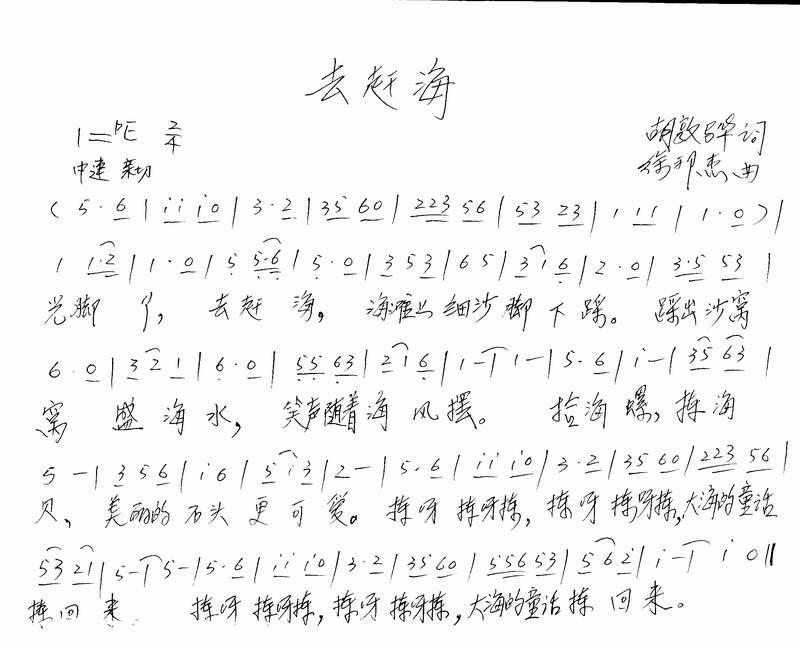 去赶海
1=♭E 2/4
胡敦骅 词
中速 亲切
徐邦杰 曲
( 5·6 | i i i 0 | 3·2 | 35 60 | 223 56 | 53 23 | 1 11 | 1·0 ) |
1 1·2 | 1·0 | 5 5·6 | 5·0 | 3 5 3 | 6 5 | 3 1 6 | 2·0 | 3·5 53 |
光脚丫, 去赶海, 海滩上细沙脚下踩。 踩出沙窝
6·0 | 3 2 1 | 6·0 | 55 63 | 2 1 6 | 1 - | 1 - | 5·6 | i - | 35 63 |
窝 盛海水, 笑声随着海风摆。 拾海螺, 拣海
5 - | 3 5 6 | i 6 | 5 i 3 | 2 - | 5·6 | i i i 0 | 3·2 | 35 60 | 223 56 |
贝, 美丽的石头更可爱。 拣呀拣呀拣, 拣呀拣呀拣, 大海的童话
53 21 | 5 - | 5 - | 5·6 | i i i 0 | 3·2 | 35 60 | 556 53 | 5 6 2 | i - | i 0 ‖
拣回来。 拣呀拣呀拣, 拣呀拣呀拣, 大海的童话拣回来。